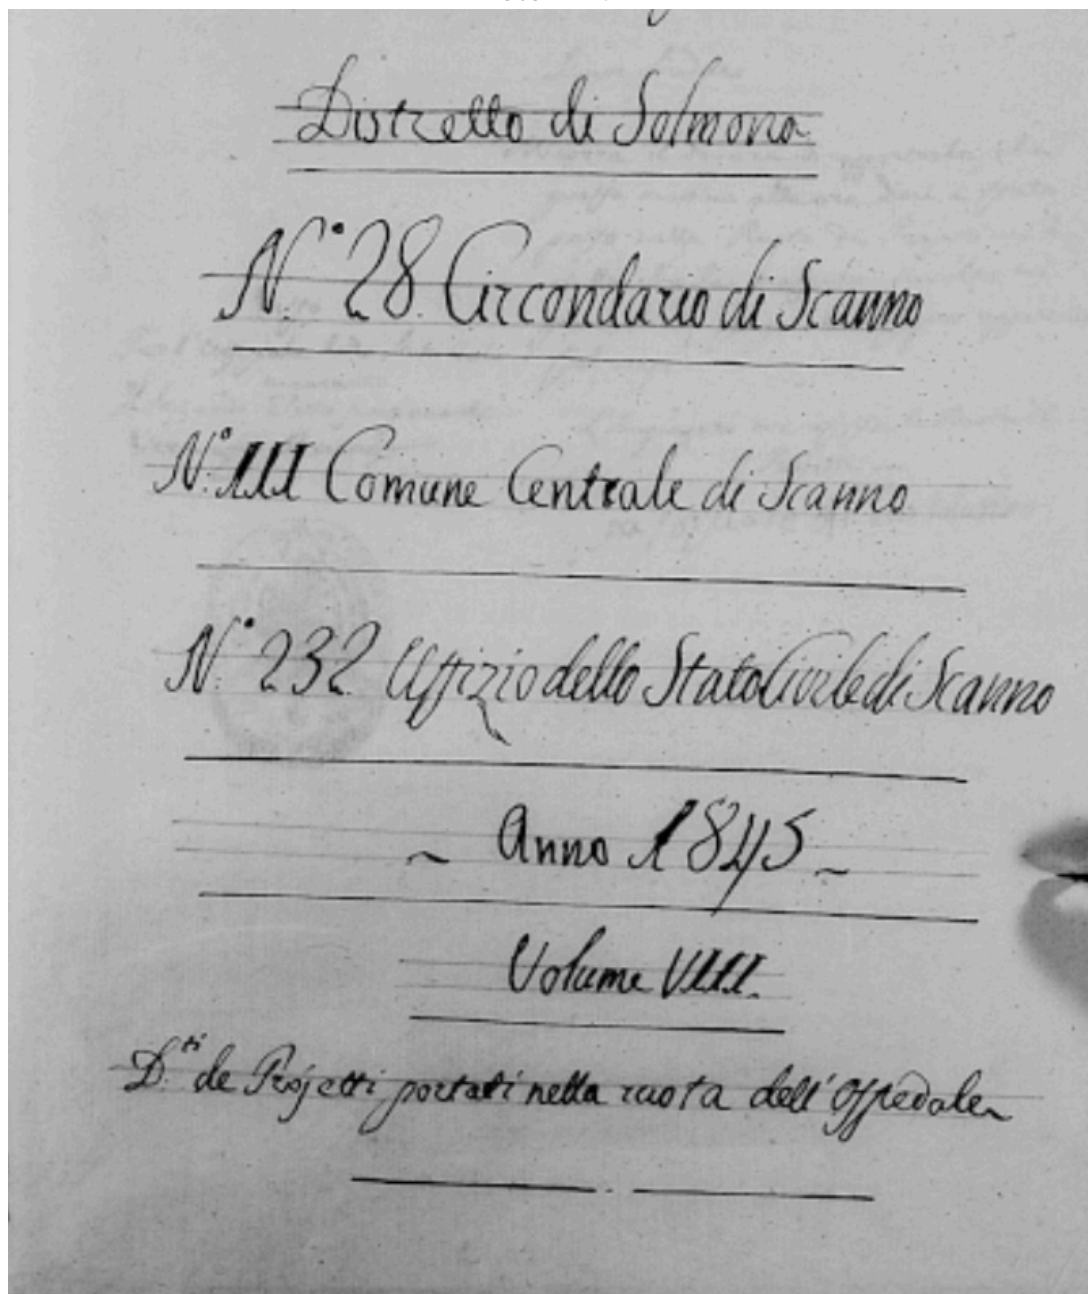 Distretto di Solmona
N.° 28. Circondario di Scanno
N.° III Comune Centrale di Scanno
N.° 232 Uffizio dello Stato Civile di Scanno
~ Anno 1845 ~
Volume VIII.
D.ti de Projetti portati nella ruota dell'Ospedale